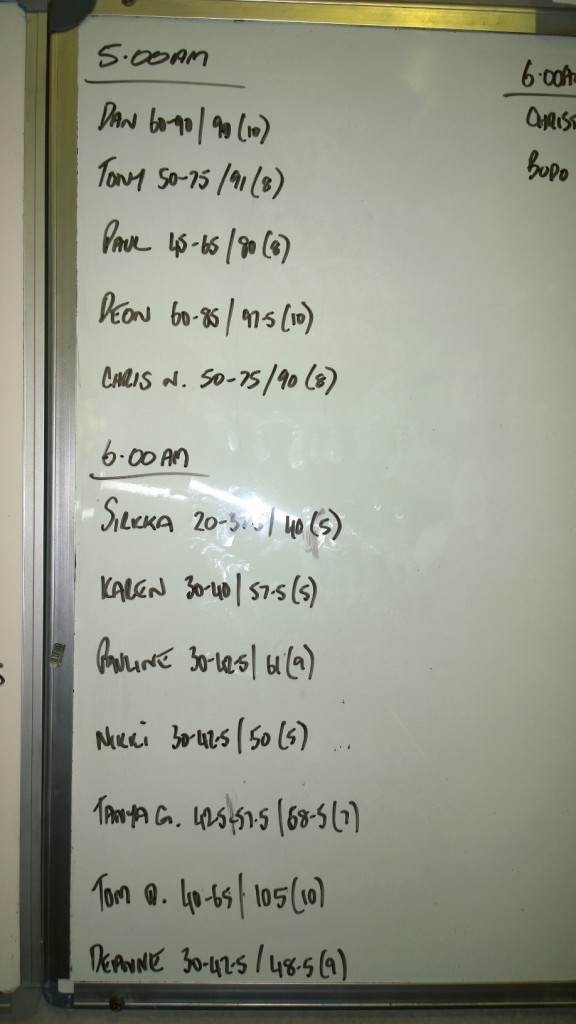 5.00AM
DAN 60-90/90(10)
TONY 50-75/91(8)
PAUL 45-65/80(8)
DEON 60-85/97.5(10)
CHRIS N. 50-75/90(8)
6.00AM
SIRKKA 40(5)
KAREN 30-40/57.5(5)
PAULINE 30-42.5/61(9)
NIKKI 30-42.5/50(5)
TANYA G. 42.5-57.5/68.5(7)
TOM Q. 40-65/105(10)
DEANNE 30-42.5/48.5(9)
6.00A
CHRIS
BODO